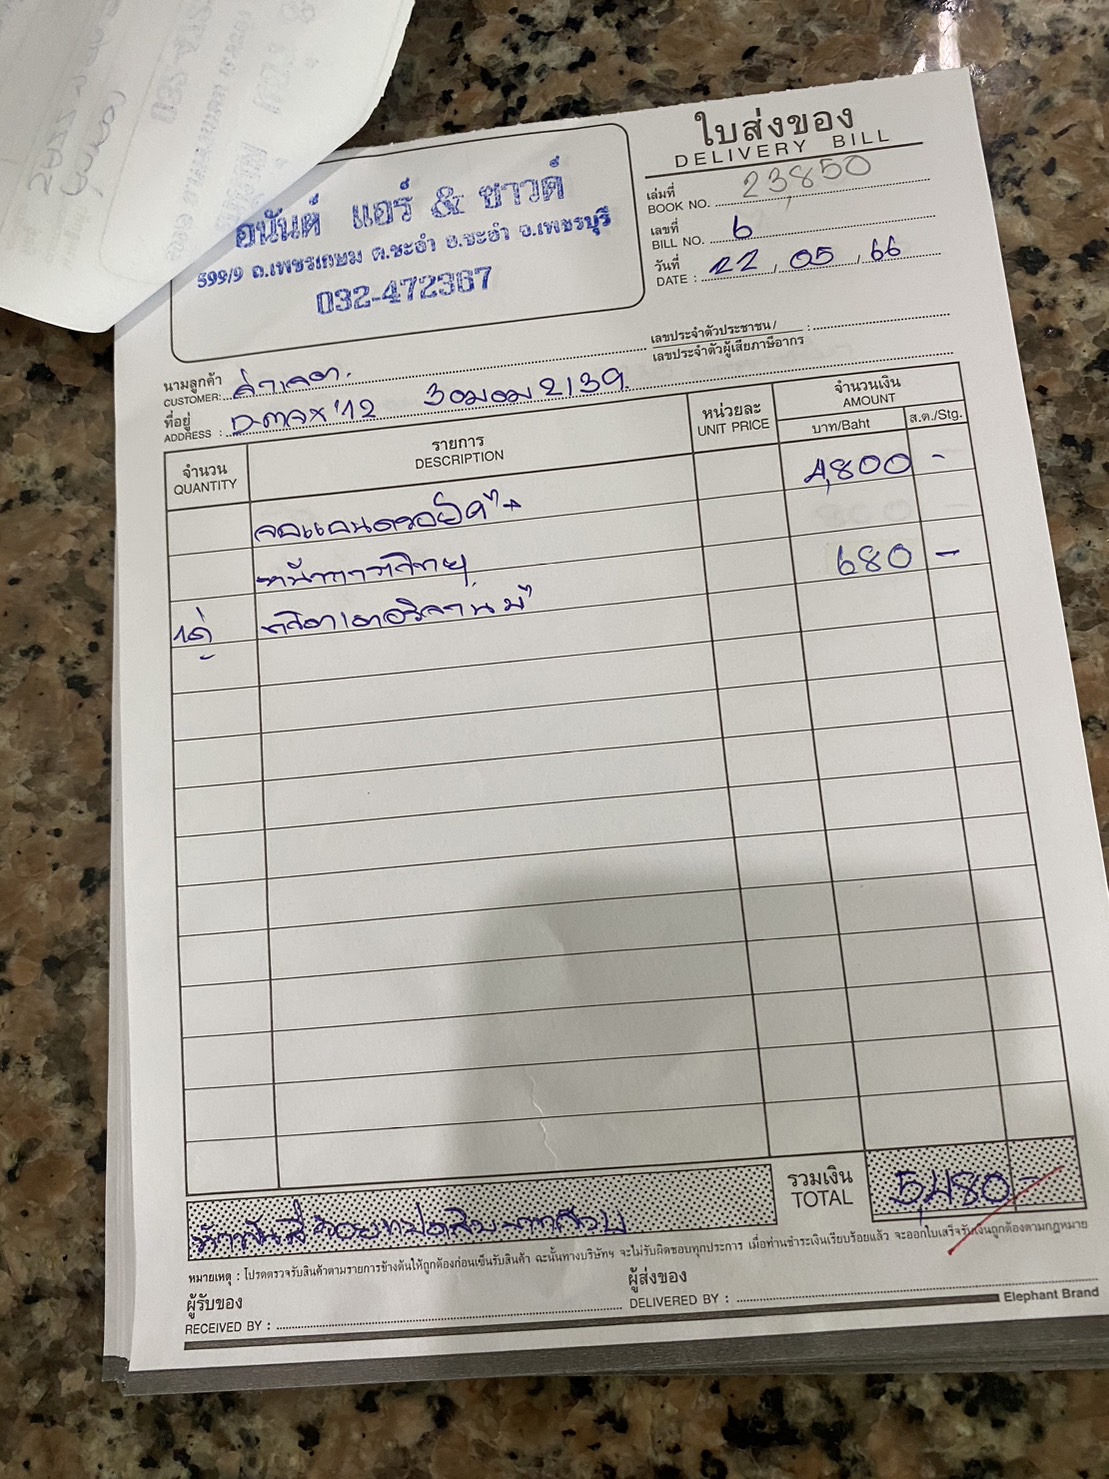 ใบส่งของ
DELIVERY BILL
เล่มที่
BOOK NO. 23,850
เลขที่
BILL NO. 6
วันที่
DATE : 22, 05, 66
อนันต์ แอร์ & ซาวด์
599/9 ถ.เพชรเกษม ต.ชะอำ อ.ชะอำ จ.เพชรบุรี
032-472367
เลขประจำตัวประชาชน/
เลขประจำตัวผู้เสียภาษีอากร
นามลูกค้า
CUSTOMER:
ที่อยู่
ADDRESS : D-max'12 2139
จำนวน
QUANTITY
รายการ
DESCRIPTION
หน่วยละ
UNIT PRICE
จำนวนเงิน
AMOUNT
บาท/Baht
ส.ต./Stg.
จอแอนดรอย 4,800 -
หน้ากากวิทยุ 680 -
1คู่
รวมเงิน
TOTAL 5,480 -
ห้าพันสี่ร้อยแปดสิบบาทถ้วน
หมายเหตุ : โปรดตรวจรับสินค้าตามรายการข้างต้นให้ถูกต้องก่อนเซ็นรับสินค้า ฉะนั้นทางบริษัทฯ จะไม่รับผิดชอบทุกประการ เมื่อท่านชำระเงินเรียบร้อยแล้ว จะออกใบเสร็จรับเงินถูกต้องตามกฎหมาย
ผู้รับของ
RECEIVED BY :
ผู้ส่งของ
DELIVERED BY :
Elephant Brand